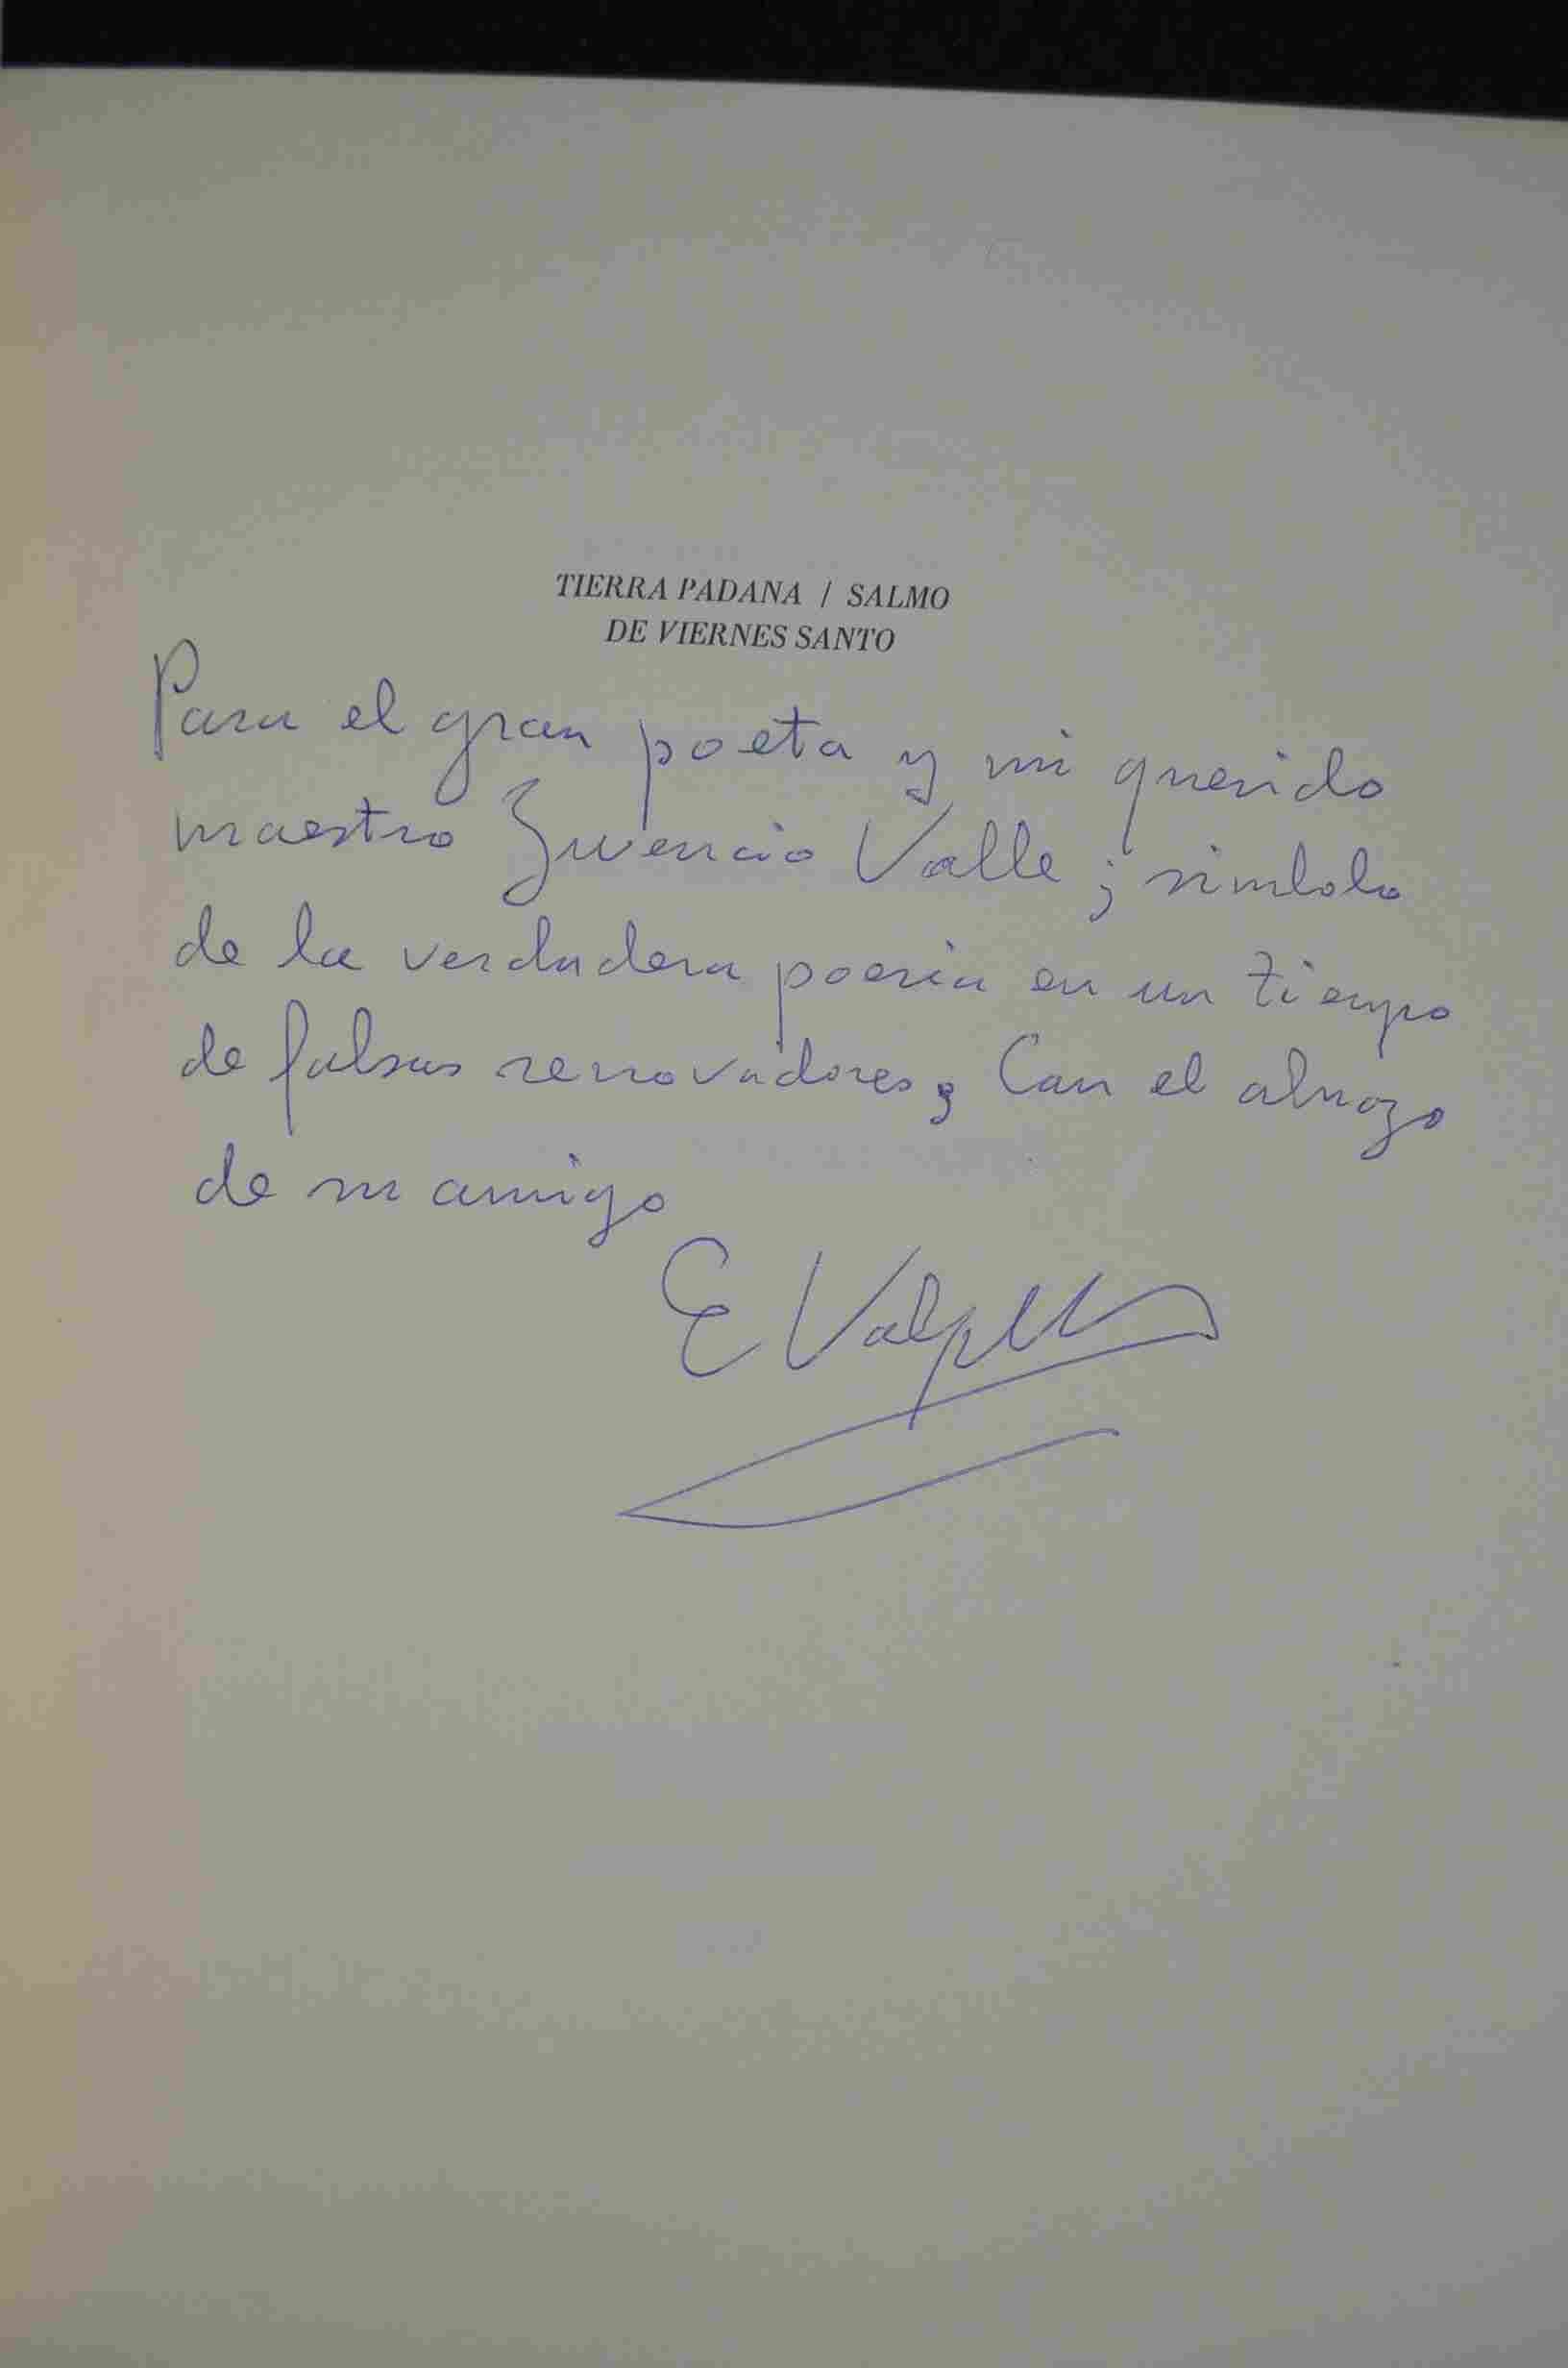 TIERRA PADANA / SALMO
DE VIERNES SANTO
Para el gran poeta y mi querido
maestro Juvencio Valle; simbolo
de la verdadera poesia en un tiempo
de falsos renovadores, Con el abrazo
de su amigo
E Valpll